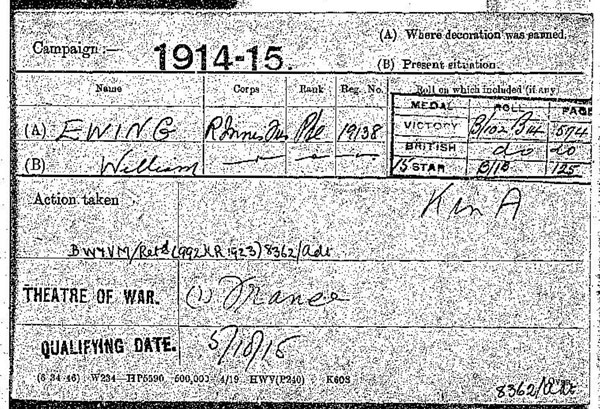 Campaign:— 1914-15.
(A) Where decoration was earned.
(B) Present situation.
Name Corps Rank Reg. No. Roll on which included (if any)
MEDAL ROLL PAGE
(A) EWING R. Innis Fus Pte 19138
VICTORY B/102 B14 574
BRITISH do do
(B) William
15 STAR B/18 125
Action taken
Kin A
BW&VM/Retd (992 KR 1923) 8362/Adt
THEATRE OF WAR. (1) France
QUALIFYING DATE. 5/10/15
(6 34 46) W234—HP5590 500,000 4/19 HWV(P240) K608
8362/Adt